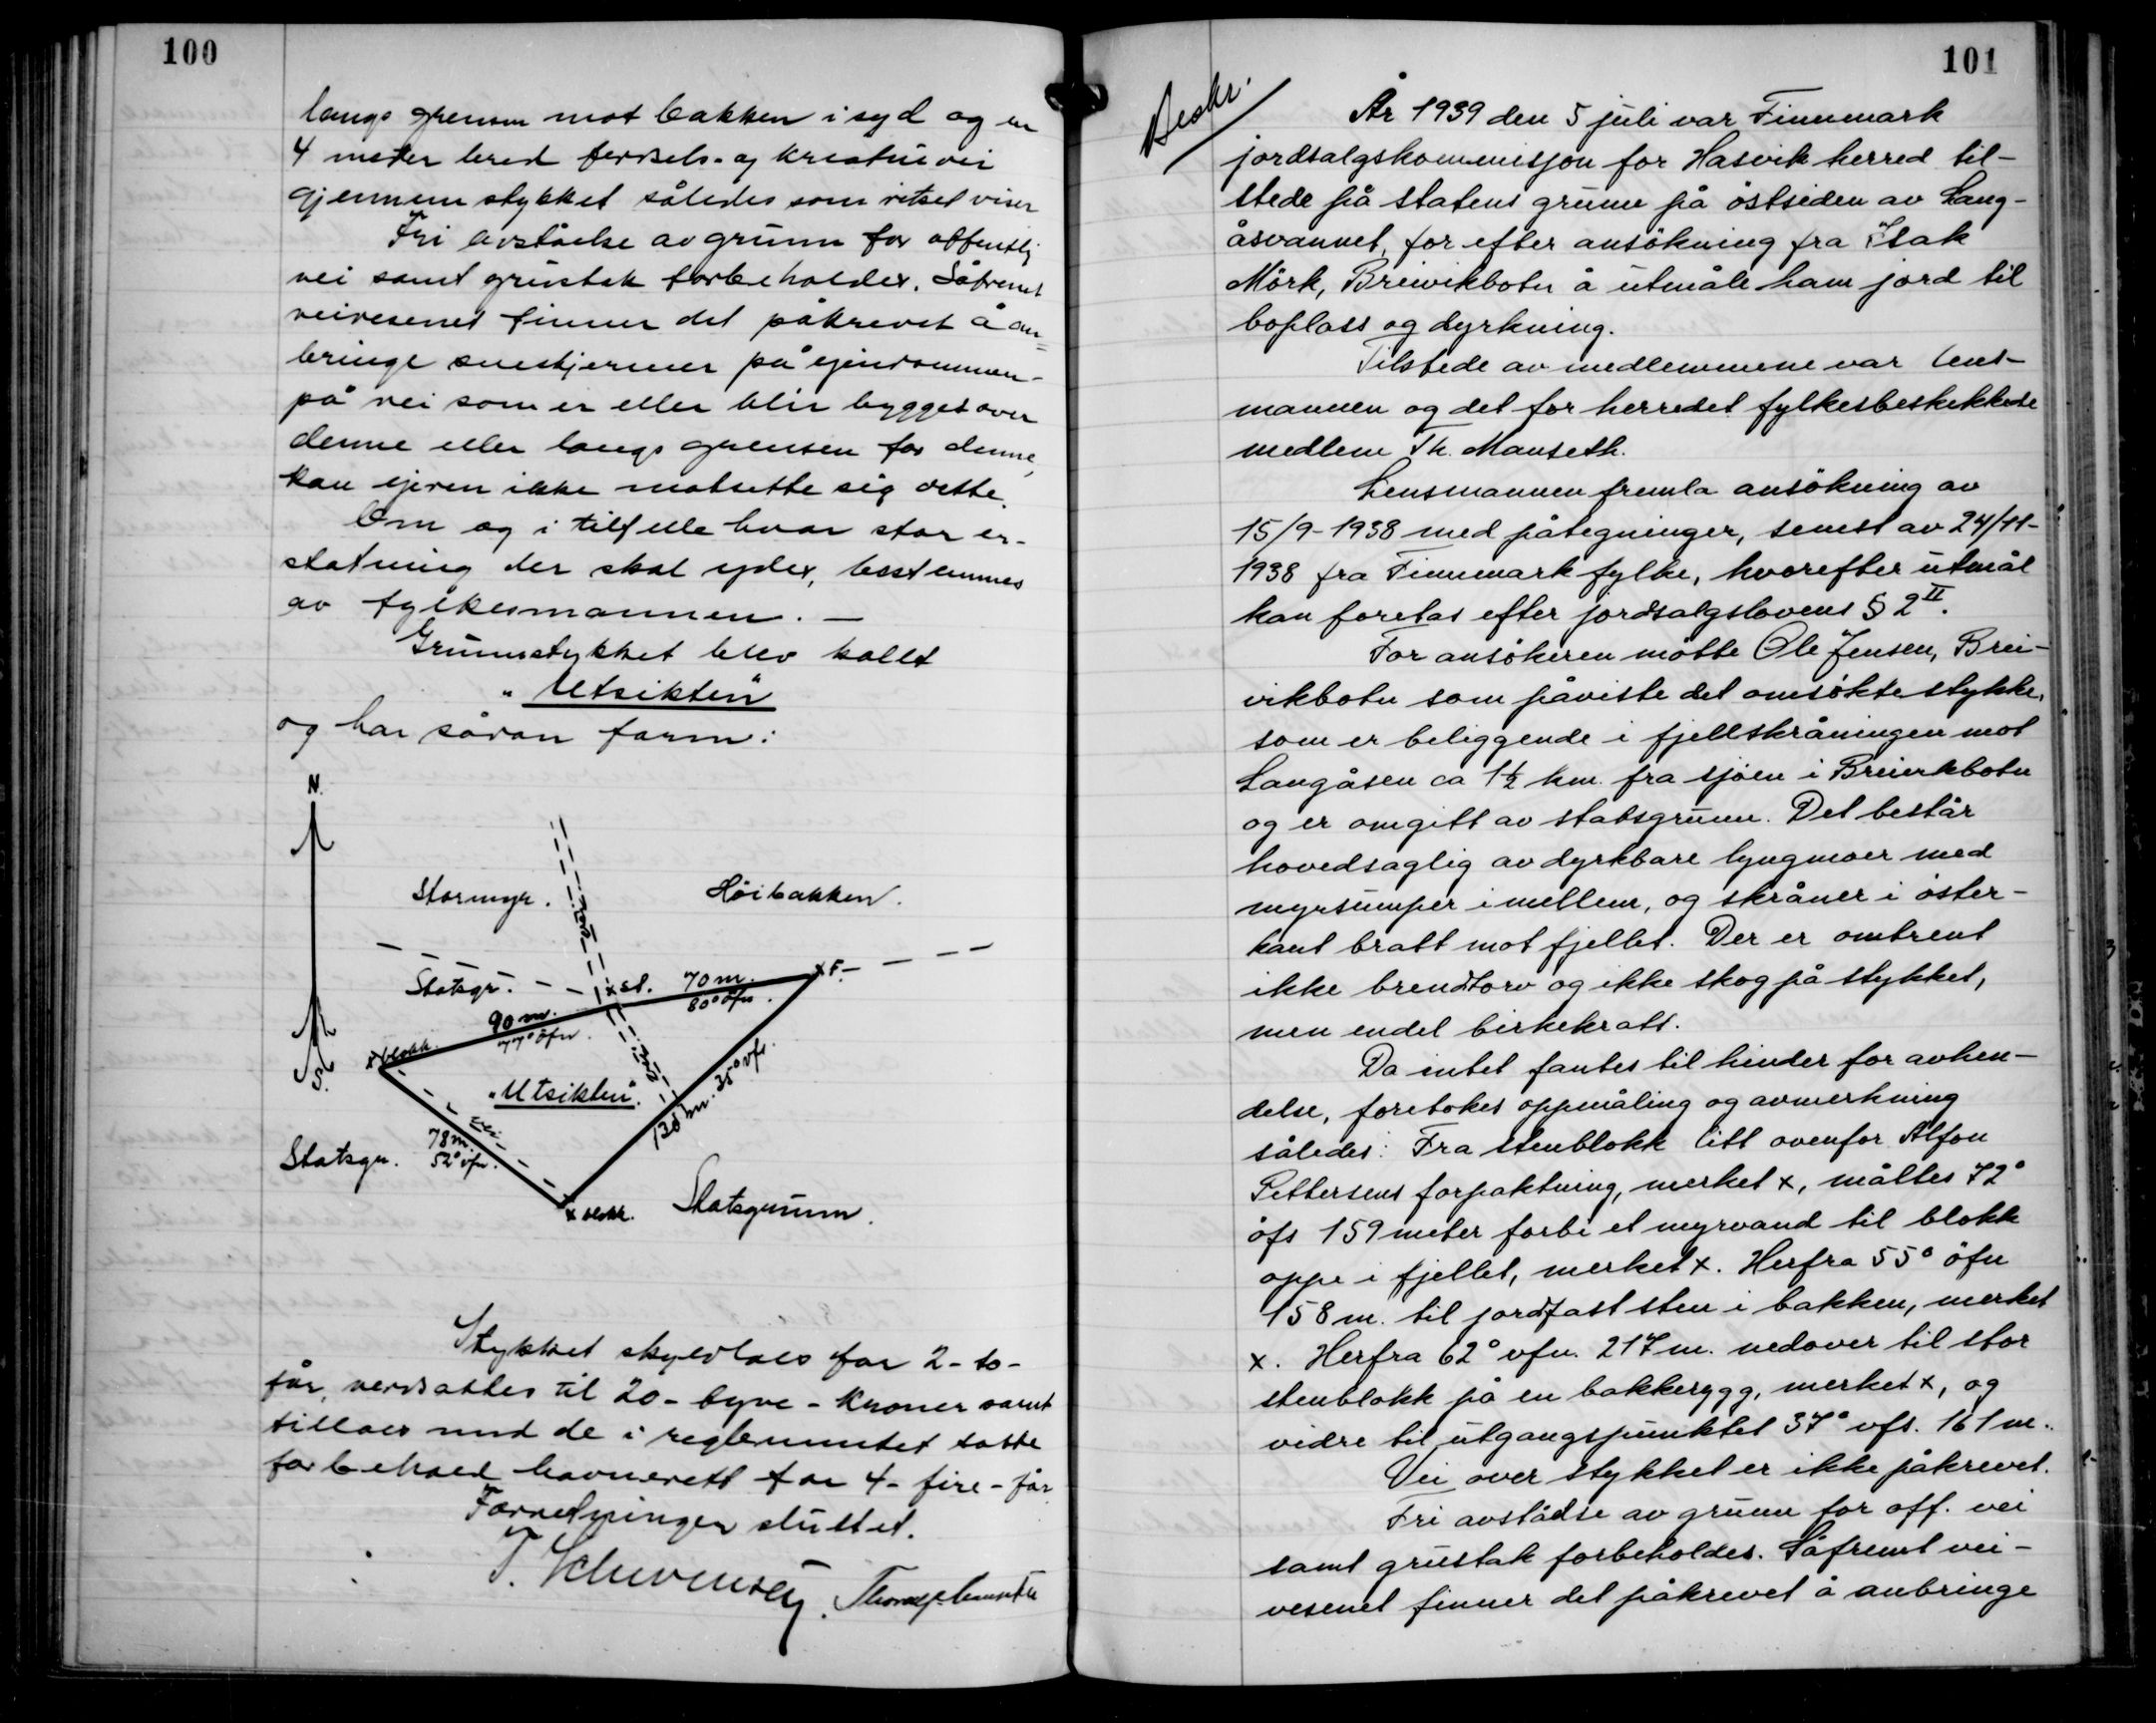 100
langs grensen mot bakken i syd og en
4 meter bred ferdsels- og kreaturvei
gjennem stykket således som ritset viser
Fri avståelse av grunn for offentlig
vei samt grustak forbeholdes. Såfremt
veivesenet finner det påkrevet å an=
bringe sneskjermer på eiendommen-
på vei som er eller blir bygget over
denne eller langs grensen for denne,
kan eieren ikke motsette sig dette.
Om og i tilfelle hvor stor er-
statning der skal ydes, bestemmes
av fylkesmannen. —
Grunnstykket blev kallt
"Utsikten"
og har sådan form:
N.
Stormyr.
Vei.
Höibakken.
Statsgr.
x st.
70 m.
80° öfn.
x F.
90 m.
77° öfn.
x blokk.
S.
"Utsikten".
Vei.
128 m. 35° vfs.
Vei
78 m.
52° vfn.
Statsgr.
x blokk.
Statsgrunn.
Stykket skyldlaes for 2-to-
får, verdsattes til 20- tyve - kroner samt
tillaes med de i reglementet tatte
forbehold havnerett for 4- fire - får
Forretningen sluttet.
101
Beskr.
År 1939 den 5 juli var Finnmark
jordsalgskommisjon for Hasvik herred til-
stede på statens grunn på östsiden av Lang-
åsvannet, for efter ansökning fra Isak
Mörk, Breivikbotn å utmåle ham jord til
boplass og dyrkning.
Tilstede av medlemmene var lens-
mannen og det for herredet fylkesbeskikkede
medlem Th. Manseth.
Lensmannen fremla ansökning av
15/9-1938 med påtegninger, senest av 24/11-
1938 fra Finnmark fylke, hvorefter utmål
kan foretas efter jordsalgslovens § 2 II.
For ansökeren mötte Ole Jensen, Brei-
vikbotn som påviste det omsökte stykke,
som er beliggende i fjellskråningen mot
Langåsen ca 1½ km. fra sjöen i Breivikbotn
og er omgitt av statsgrunn. Det består
hovedsaglig av dyrkbare lyngmoer med
myrsumper imellem, og skråner i öster-
kant bratt mot fjellet. Der er omtrent
ikke brendtorv og ikke skog på stykket,
men endel birkekratt.
Da intet fantes til hinder for avhen-
delse, foretokes oppmåling og avmerkning
således: Fra stenblokk litt ovenfor Alfon
Pettersens forpaktning, merket x, måltes 72°
öfs 159 meter forbi et myrvand til blokk
oppe i fjellet, merket x. Herfra 55° öfn
158 m. til jordfast sten i bakken, merket
x. Herfra 62° vfn. 217 m. nedover til stor
stenblokk på en bakkerygg, merket x, og
vidre til utgangspunktet 37° vfs. 161 m.
Vei over stykket er ikke påkrevet.
Fri avståelse av grunn for off. vei
samt grustak forbeholdes. Såfremt vei-
vesenet finner det påkrevet å anbringe